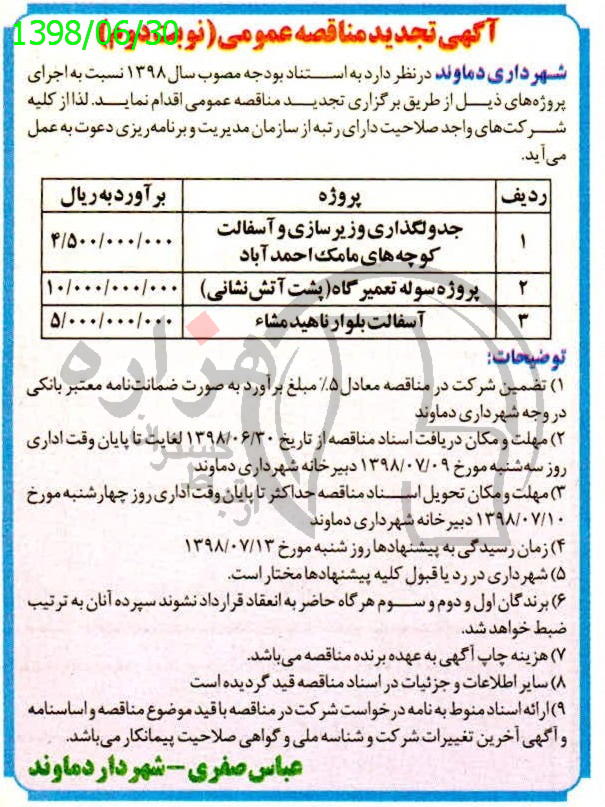 1398/06/30
آگهی تجدید مناقصه عمومی (نوبت دوم)
شهرداری دماوند در نظر دارد به استناد بودجه مصوب سال ۱۳۹۸ نسبت به اجرای
پروژه‌های ذیل از طریق برگزاری تجدید مناقصه عمومی اقدام نماید. لذا از کلیه
شرکت‌های واجد صلاحیت دارای رتبه از سازمان مدیریت و برنامه‌ریزی دعوت به عمل
می‌آید.
ردیف پروژه برآورد به ریال
۱ جدولگذاری و زیرسازی و آسفالت کوچه‌های مامک احمدآباد ۴/۵۰۰/۰۰۰/۰۰۰
۲ پروژه سوله تعمیرگاه (پشت آتش نشانی) ۱۰/۰۰۰/۰۰۰/۰۰۰
۳ آسفالت بلوار ناهید مشاء ۵/۰۰۰/۰۰۰/۰۰۰
توضیحات:
۱) تضمین شرکت در مناقصه معادل ۵٪ مبلغ برآورد به صورت ضمانت‌نامه معتبر بانکی
در وجه شهرداری دماوند
۲) مهلت و مکان دریافت اسناد مناقصه از تاریخ ۱۳۹۸/۰۶/۳۰ لغایت تا پایان وقت اداری
روز سه‌شنبه مورخ ۱۳۹۸/۰۷/۰۹ دبیرخانه شهرداری دماوند
۳) مهلت و مکان تحویل اسناد مناقصه حداکثر تا پایان وقت اداری روز چهارشنبه مورخ
۱۳۹۸/۰۷/۱۰ دبیرخانه شهرداری دماوند
۴) زمان رسیدگی به پیشنهادها روز شنبه مورخ ۱۳۹۸/۰۷/۱۳
۵) شهرداری در رد یا قبول کلیه پیشنهادها مختار است.
۶) برندگان اول و دوم و سوم هرگاه حاضر به انعقاد قرارداد نشوند سپرده آنان به ترتیب
ضبط خواهد شد.
۷) هزینه چاپ آگهی به عهده برنده مناقصه می‌باشد.
۸) سایر اطلاعات و جزئیات در اسناد مناقصه قید گردیده است
۹) ارائه اسناد منوط به نامه درخواست شرکت در مناقصه با قید موضوع مناقصه و اساسنامه
و آگهی آخرین تغییرات شرکت و شناسه ملی و گواهی صلاحیت پیمانکار می‌باشد.
عباس صفری - شهردار دماوند
هزاره